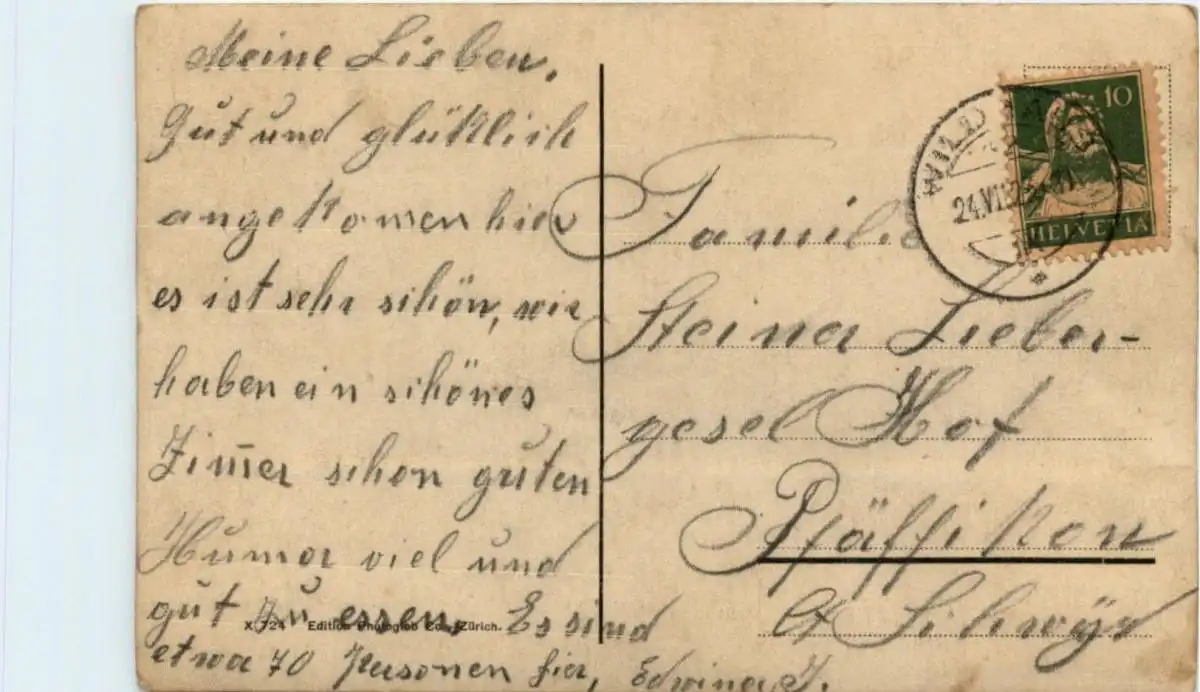 Meine Lieben,
Gut und glüklich
angekomen hier
es ist sehr schön, wir
haben ein schönes
Zim̄er schon guten
Humor viel und
gut zu essen, Es sind
etwa 70 Personen hier,
X 724 Edition Photoglob Co., Zürich.
10
HELVETIA
24.VI
Familie
Steina Lieber-
gesel Hof
Pfäffikon
Ct Schwÿz